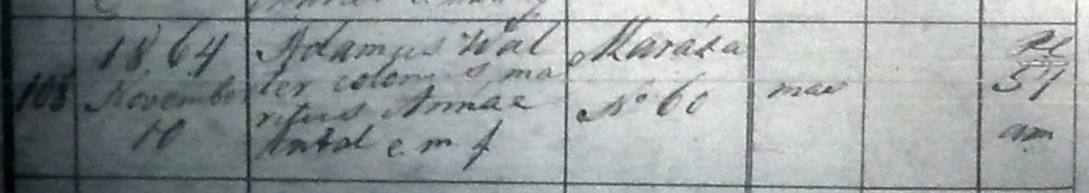 108
1864
November
10
Adamus Wal
ter colonus ma
ritus Annae
Antal c m f
Marása
No 60
mas
57
am